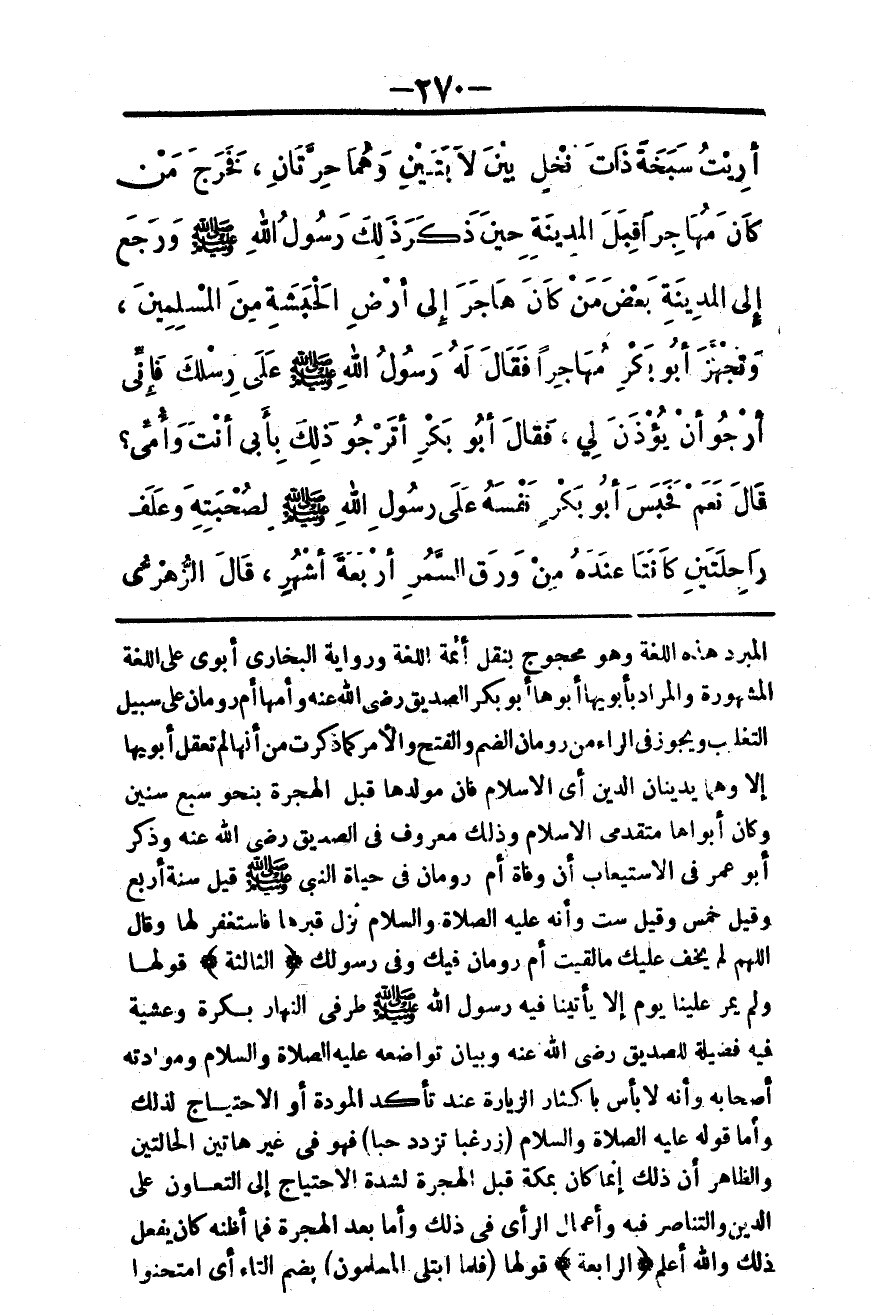 — ٢٧٠ —
أُرِيْتُ سَبَخَةً ذَاتَ نَخْلٍ بَيْنَ لاَبَتَيْنِ وَهُمَا حرَّتَانِ ، فَخَرَجَ مَنْ
كَانَ مُهَاجِراً قِبَلَ المدِينَةِ حِينَ ذَكَرَ ذَلِكَ رَسُولُ اللهِ ﷺ وَرَجَعَ
إِلى المدِينَةِ بَعْضُ مَنْ كَانَ هَاجَرَ إِلى أَرْضِ الْحَبَشَةِ مِنَ المُسْلِمِينَ ،
وَتَجَهَّزَ أَبُو بَكْرٍ مُهَاجِراً فَقَالَ لَهُ رَسُولُ اللهِ ﷺ عَلَى رِسْلكَ فَإِنِّى
أَرْجُو أَنْ يُؤْذَنَ لِي ، فَقالَ أَبُو بَكْرٍ أَتَرْجُو ذَلِكَ بِأَبى أَنْتَ وَأُمِّى ؟
قَالَ نَعَمْ فَحَبَسَ أَبُو بَكْرٍ نَفْسَهُ عَلَى رسُولِ اللهِ ﷺ لِصُحْبَتِهِ وعَلَفَ
رَاحِلَتَيْنِ كَانَتَا عنْدَهُ مِنْ وَرَقِ السَّمُرِ أَرْبَعَةَ أَشْهُرٍ ، قَالَ الزُّهْرِىُّ
المبرد هذه اللغة وهو محجوج بنقل أئمة اللغة ورواية البخارى أبوى على اللغة
المشهورة والمراد بأبويها أبوها أبو بكر الصديق رضى الله عنه وأمها أم رومان على سبيل
التغليب ويجوز فى الراء من رومان الضم والفتح والأمر كما ذكرت من أنها لم تعقل أبويها
إلا وهما يدينان الدين أى الاسلام فان مولدها قبل الهجرة بنحو سبع سنين
وكان أبواها متقدمى الاسلام وذلك معروف فى الصديق رضى الله عنه وذكر
أبو عمر فى الاستيعاب أن وفاة أم رومان فى حياة النبي ﷺ قيل سنة أربع
وقيل خمس وقيل ست وأنه عليه الصلاة والسلام نزل قبرها فاستغفر لها وقال
اللهم لم يخف عليك مالقيت أم رومان فيك وفى رسولك ﴿ الثالثة ﴾ قولهـا
ولم يمر علينا يوم إلا يأتينا فيه رسول الله ﷺ طرفى النهار بكرة وعشية
فيه فضيلة للصديق رضى الله عنه وبيان تواضعه عليه الصلاة والسلام وموادته
أصحابه وأنه لا بأس باكثار الزيارة عند تأكد المودة أو الاحتيـاج لذلك
وأما قوله عليه الصلاة والسلام (زرغبا تزدد حبا) فهو فى غير هاتين الحالتين
والظاهر أن ذلك إنما كان بمكة قبل الهجرة لشدة الاحتياج إلى التعـاون على
الدين والتناصر فيه وأعمال الرأى فى ذلك وأما بعد الهجرة فما أظنه كان يفعل
ذلك والله أعلم ﴿ الرابعة ﴾ قولها (فلما ابتلى المسلمون) بضم التاء أى امتحنوا